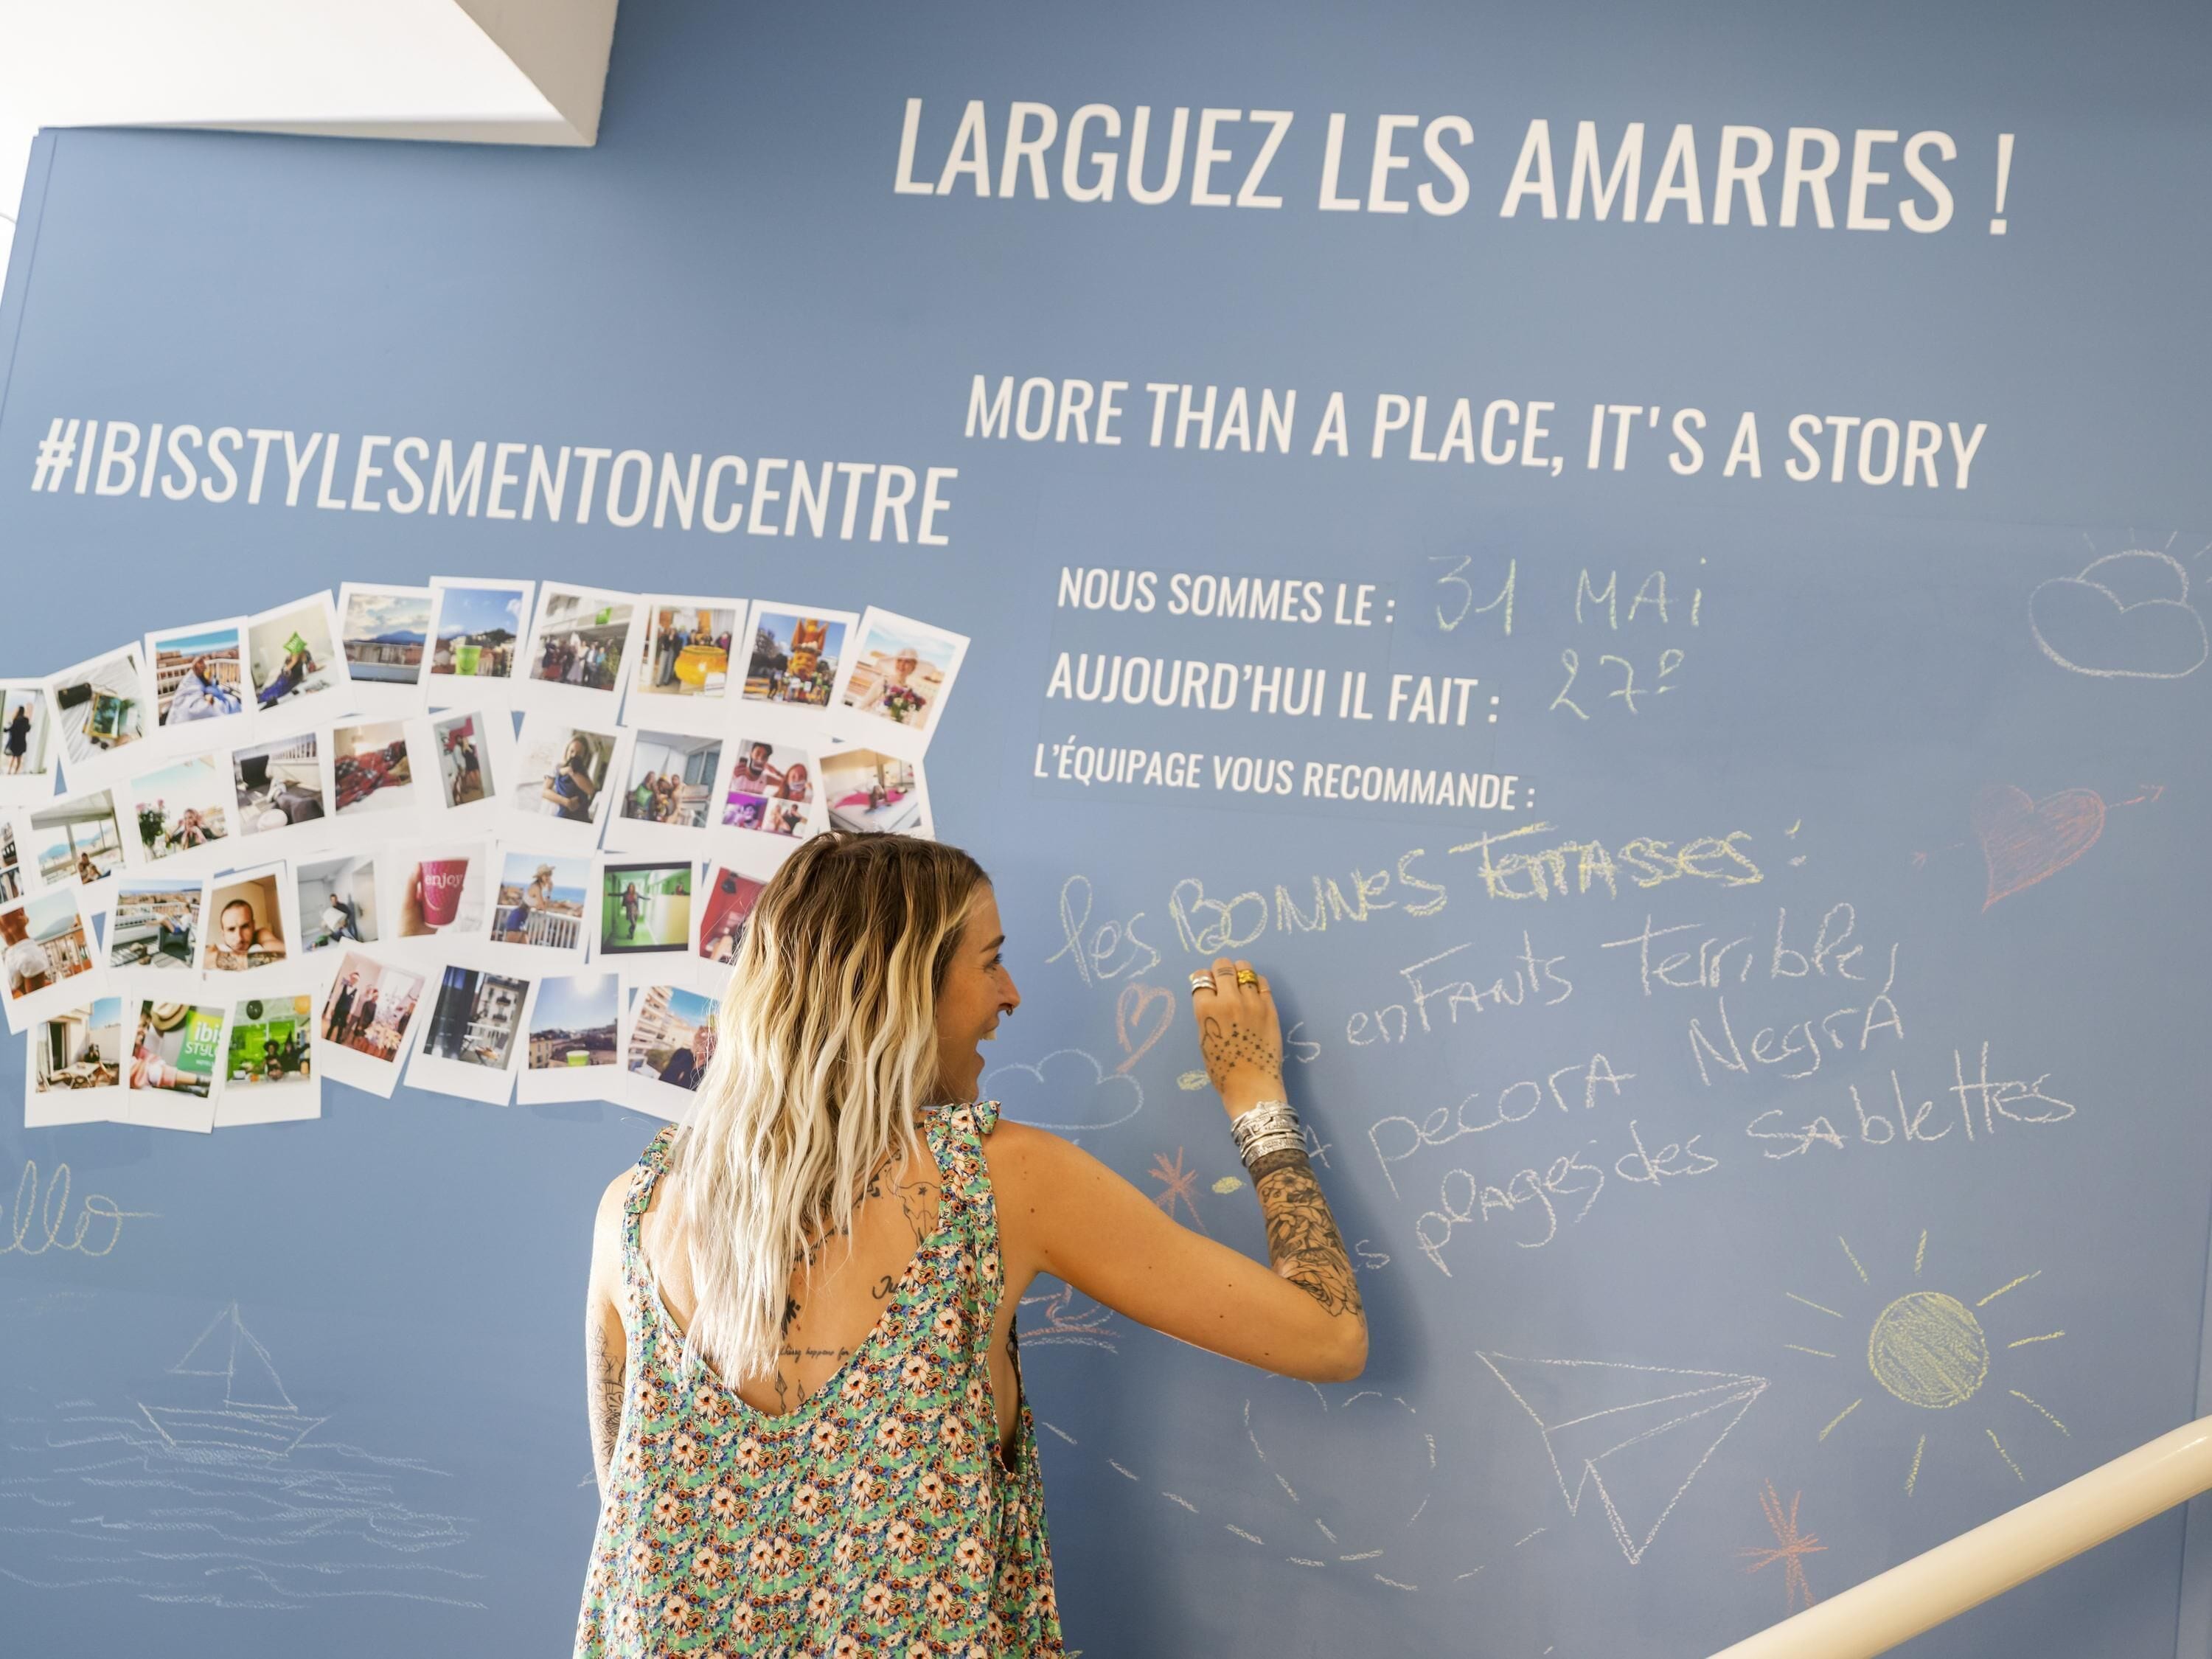 LARGUEZ LES AMARRES !
MORE THAN A PLACE, IT'S A STORY
#IBISSTYLESMENTONCENTRE
NOUS SOMMES LE : 31 MAi
AUJOURD'HUI IL FAIT : 27°
L'ÉQUIPAGE VOUS RECOMMANDE :
les BONNES TerrASSES :
enFAnts Terrible,
pecorA NegrA
plages des SAblettes
enjoy
ibis
STYL
llo